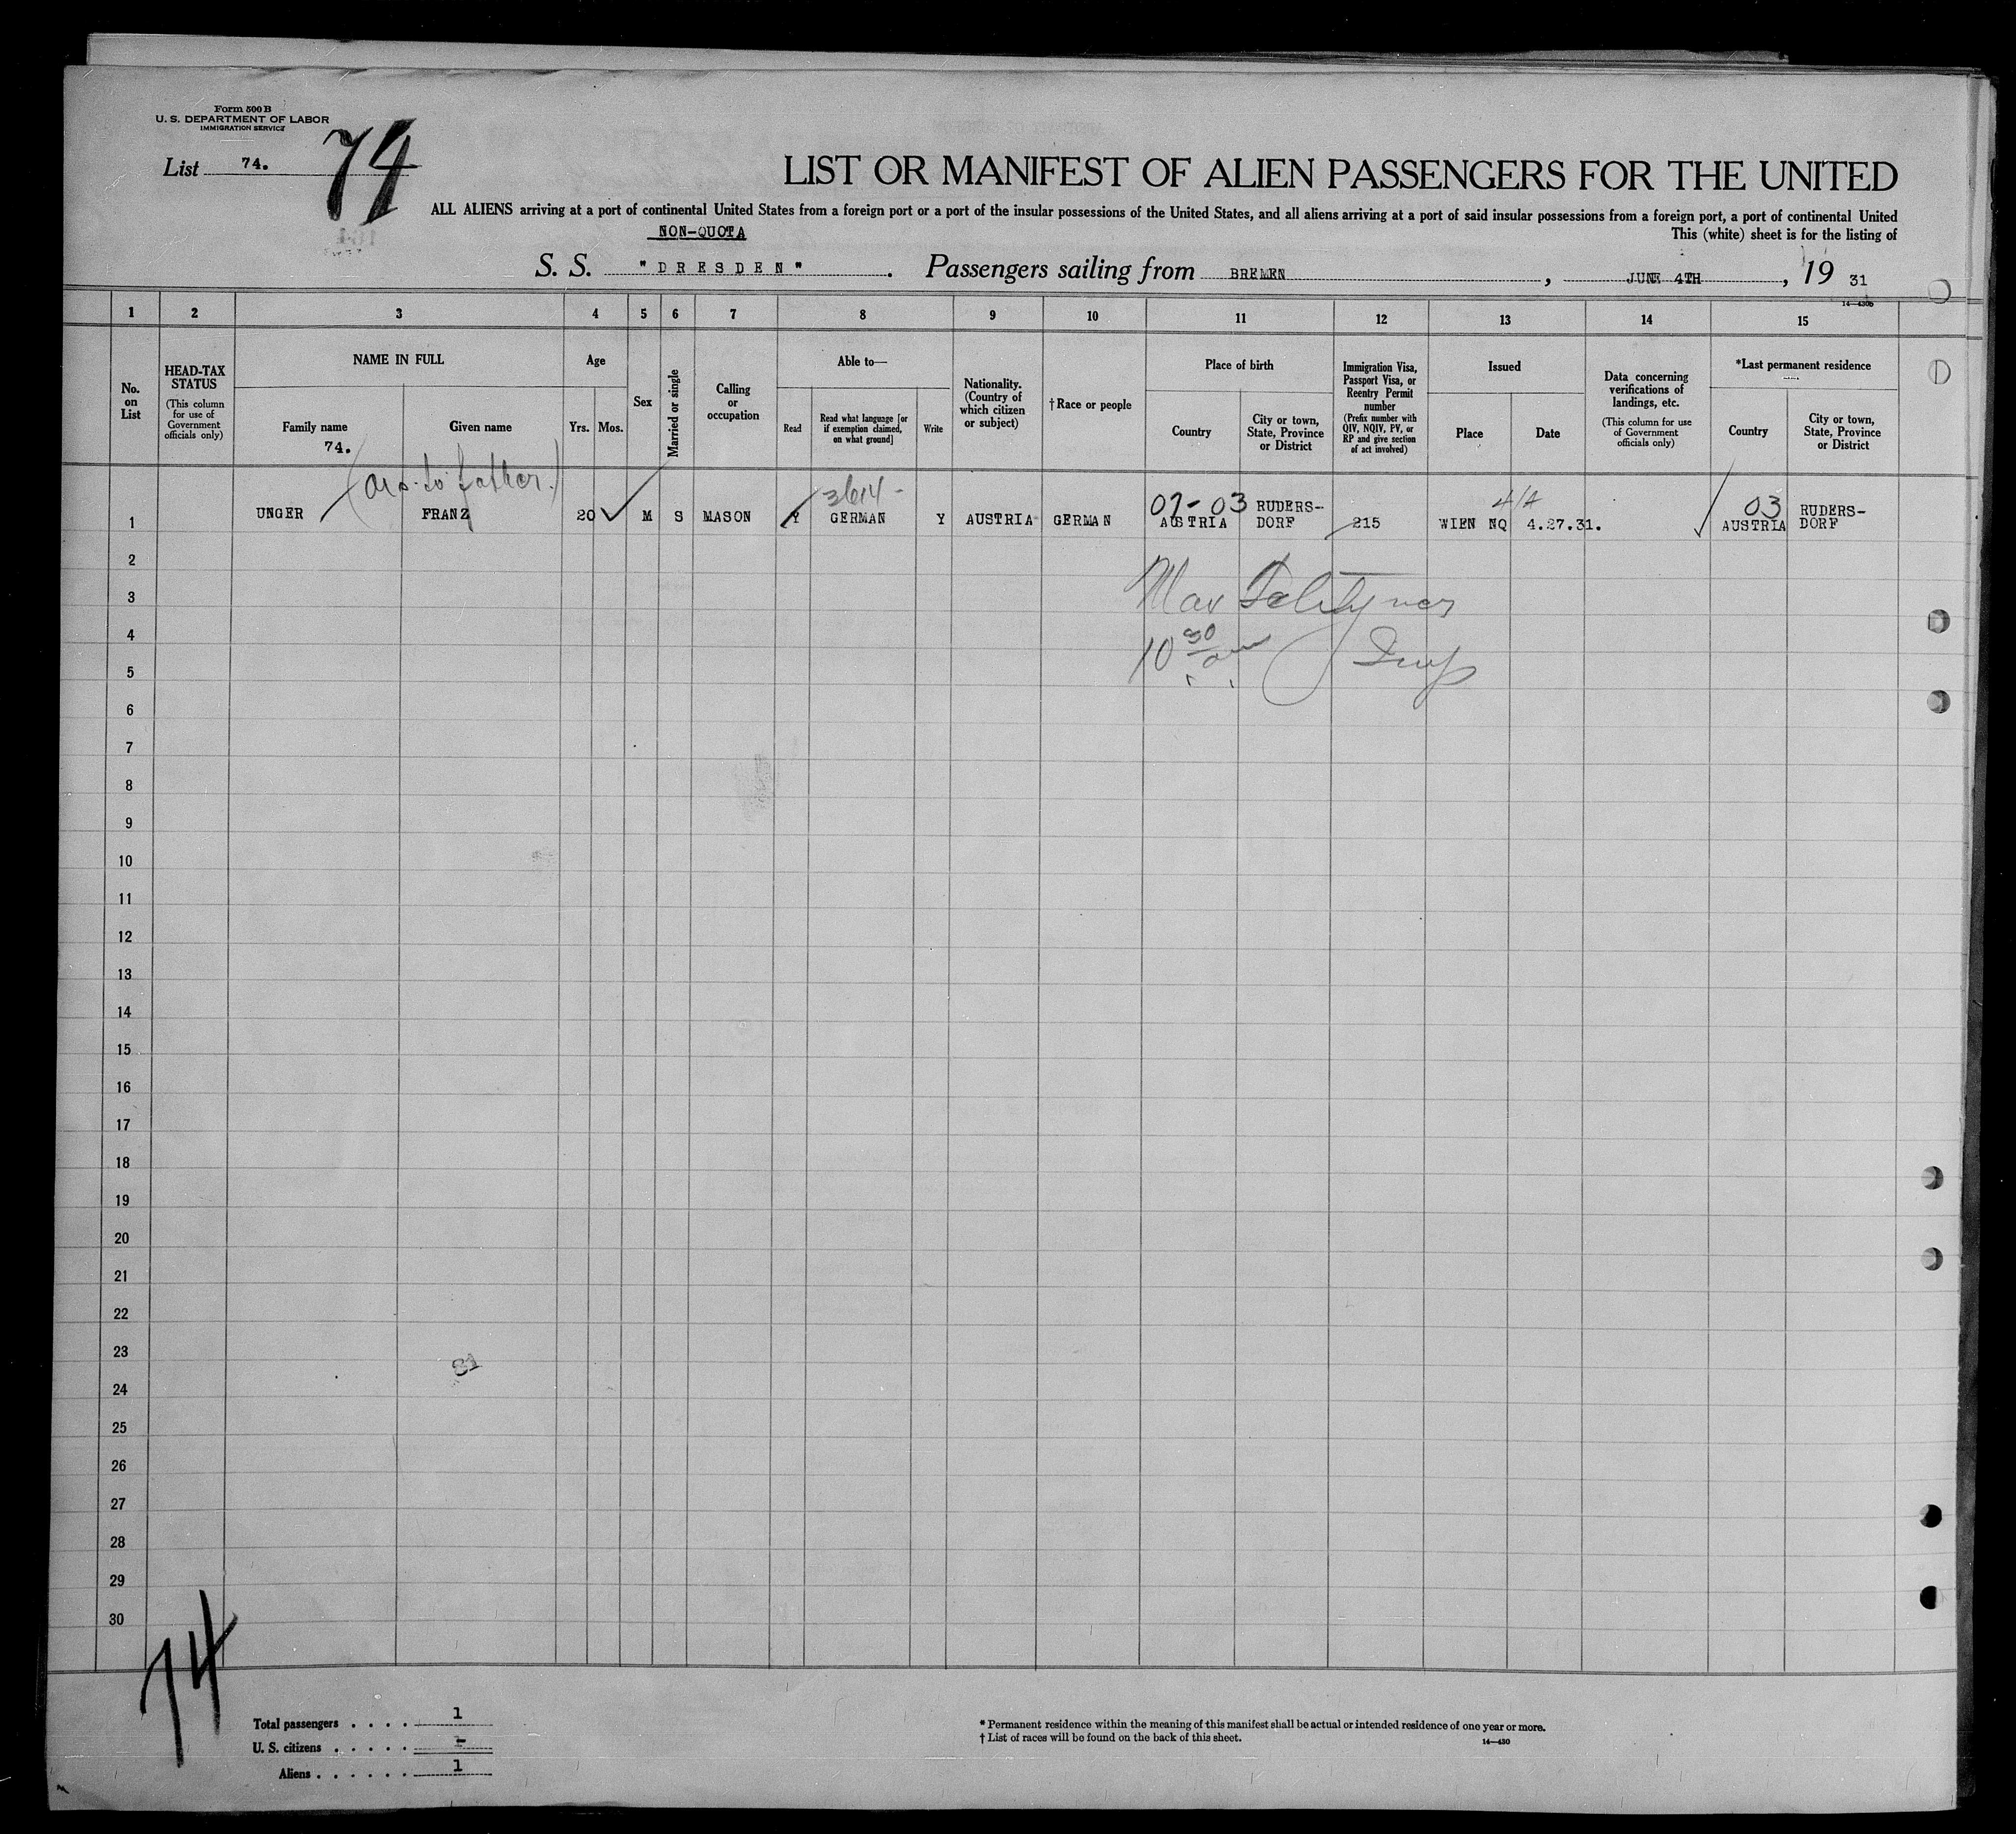 Form 500 B
U. S. DEPARTMENT OF LABOR
IMMIGRATION SERVICE
List 74.
74
LIST OR MANIFEST OF ALIEN PASSENGERS FOR THE UNITED
ALL ALIENS arriving at a port of continental United States from a foreign port or a port of the insular possessions of the United States, and all aliens arriving at a port of said insular possessions from a foreign port, a port of continental United
NON-QUOTA
This (white) sheet is for the listing of
S. S. "DRESDEN". Passengers sailing from BREMEN, JUNE 4TH, 19 31
14—430b
1 2 3 4 5 6 7 8 9 10 11 12 13 14 15
No. on List
HEAD-TAX STATUS
(This column for use of Government officials only)
NAME IN FULL
Family name
74.
Given name
Age
Yrs. Mos.
Sex
Married or single
Calling or occupation
Able to—
Read
Read what language [or if exemption claimed, on what ground]
Write
Nationality. (Country of which citizen or subject)
†Race or people
Place of birth
Country
City or town, State, Province or District
Immigration Visa, Passport Visa, or Reentry Permit number
(Prefix number with QIV, NQIV, PV, or RP and give section of act involved)
Issued
Place
Date
Data concerning verifications of landings, etc.
(This column for use of Government officials only)
*Last permanent residence
Country
City or town, State, Province or District
to father.)
3614 -
07-03
4/A
03
1 UNGER FRANZ 20 M S MASON Y GERMAN Y AUSTRIA GERMAN AUSTRIA RUDERS-DORF 215 WIEN NQ 4.27.31. AUSTRIA RUDERS-DORF
2
3
4
10 30
Insp
5
6
7
8
9
10
11
12
13
14
15
16
17
18
19
20
21
22
23
24
25
26
27
28
29
30
74
Total passengers . . . . 1
U. S. citizens . . . . . -
Aliens . . . . . . 1
* Permanent residence within the meaning of this manifest shall be actual or intended residence of one year or more.
† List of races will be found on the back of this sheet.
14—430